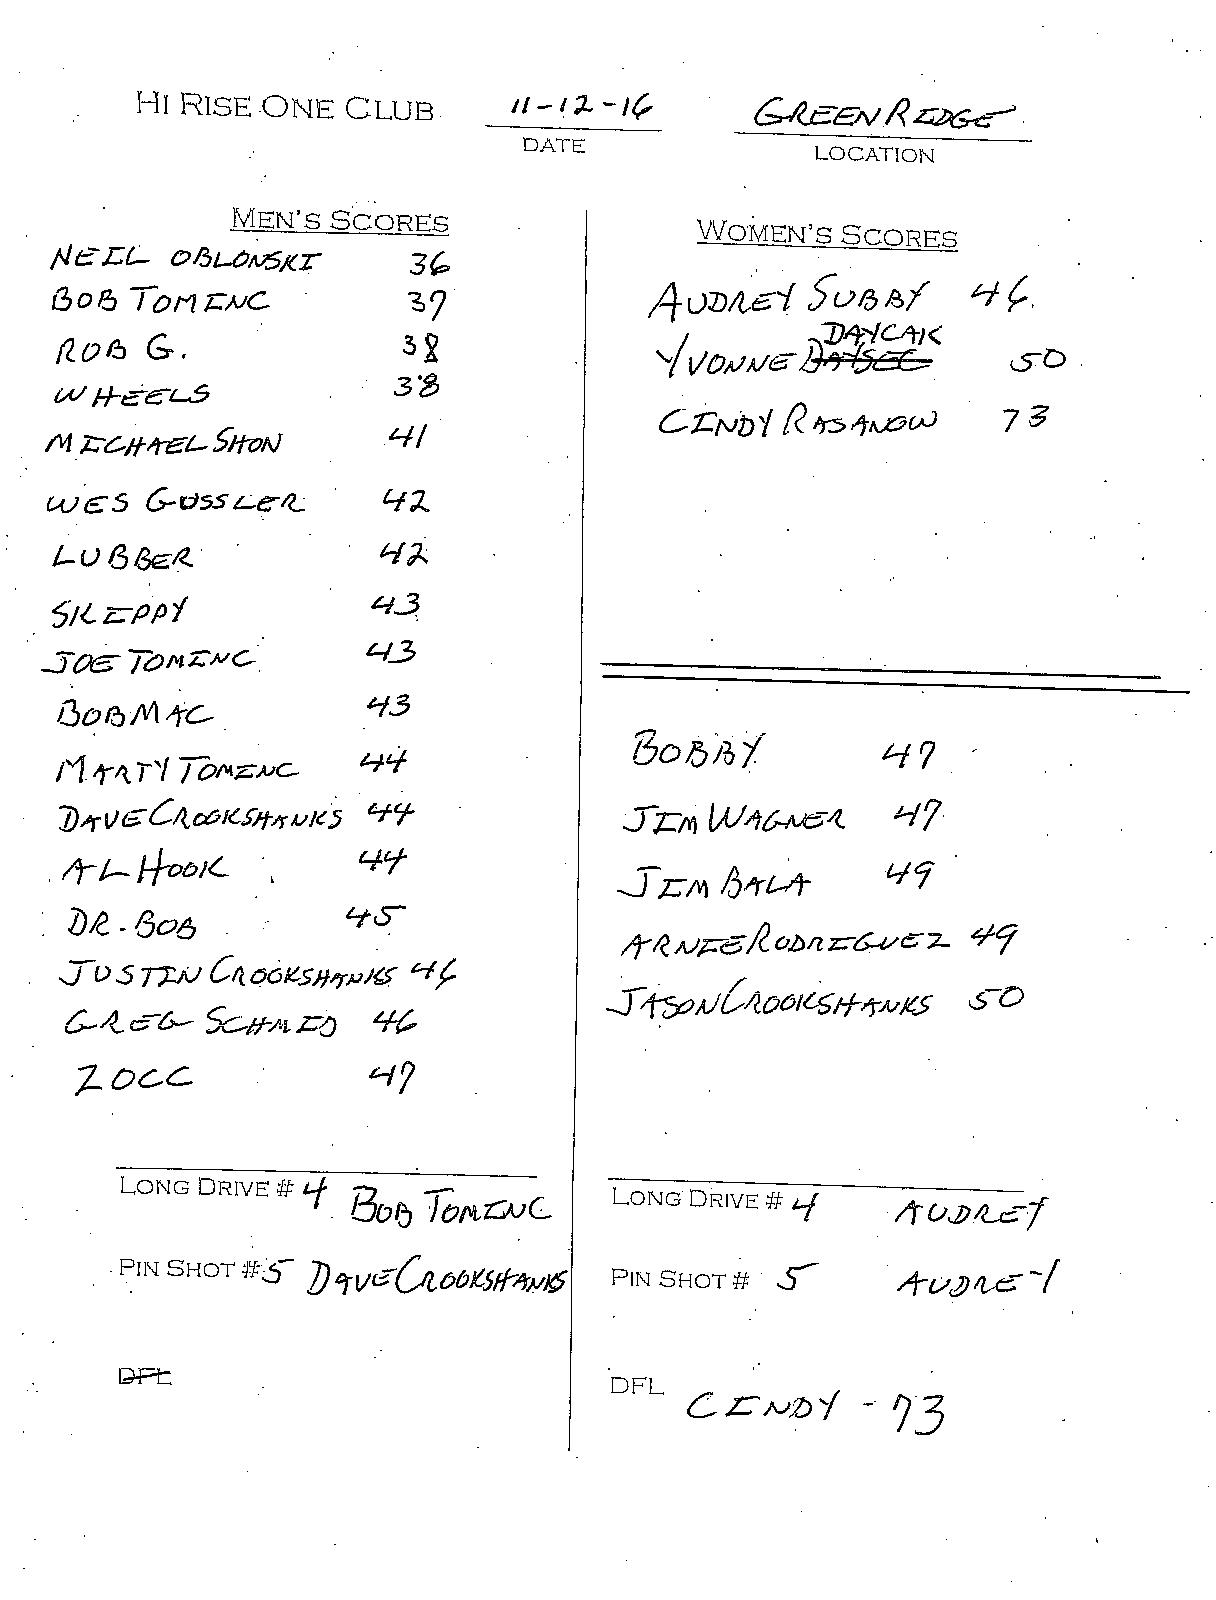 HI RISE ONE CLUB 11-12-16 GREENRIDGE
DATE LOCATION
MEN'S SCORES
NEIL OBLONSKI 36
BOB TOMINC 37
ROB G. 38
WHEELS 38
MICHAEL SHON 41
WES GUSSLER 42
LUBBER 42
SKIPPY 43
JOE TOMINC 43
BOBMAC 43
MARTY TOMINC 44
DAVE CROOKSHANKS 44
AL HOOK 44
DR. BOB 45
JUSTIN CROOKSHANKS 46
GREG SCHMID 46
ZOCC 47
LONG DRIVE # 4 BOB TOMINC
PIN SHOT # 5 DAVE CROOKSHANKS
DFL
WOMEN'S SCORES
AUDREY SUBBY 46
DAYCAK
YVONNE 50
CINDY RASANOW 73
BOBBY 47
JIM WAGNER 47
JIM BALA 49
ARNIE RODRIGUEZ 49
JASON CROOKSHANKS 50
LONG DRIVE # 4 AUDREY
PIN SHOT # 5 AUDREY
DFL CINDY - 73